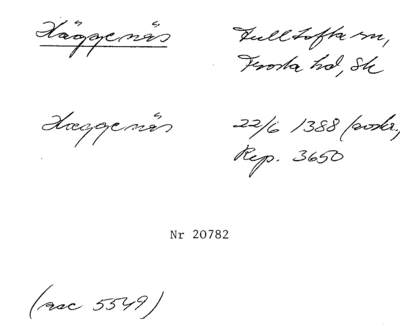 Häggenäs Fulltofta sn,
Frosta hd, Sk
Hæggenæs 22/6 1388 (avskr.,
Rep. 3650
Nr 20782
(asc 5549)